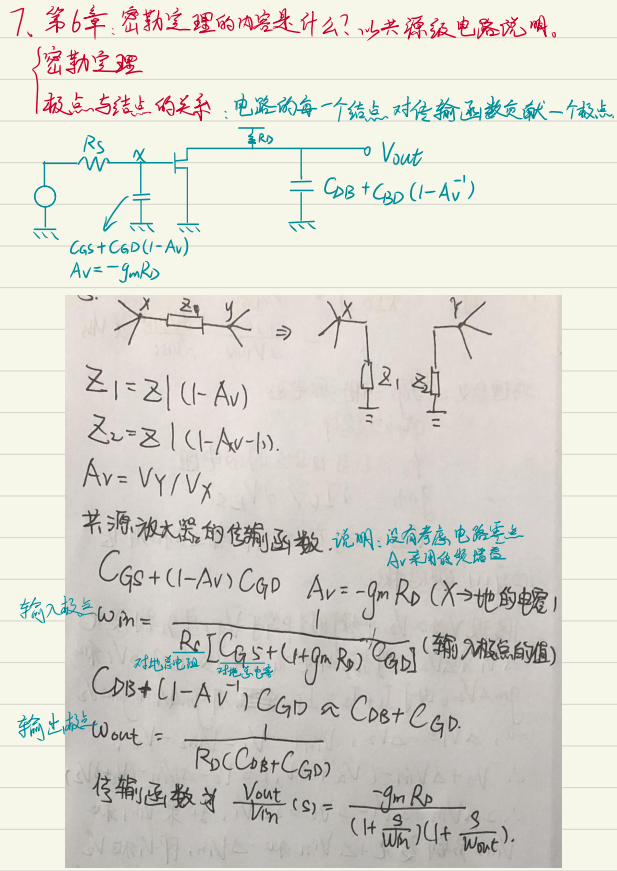 7、第6章：密勒定理的内容是什么？以共源级电路说明。
密勒定理
极点与结点的关系：电路的每一个结点对传输函数贡献一个极点
RS
X
RD
Vout
CDB+CBD(1-Av⁻¹)
CGS+CGD(1-Av)
Av=-gmRD
X Y ⇒ X Y
Z1 Z2
Z1=Z/(1-Av)
Z2=Z/(1-Av-1).
Av=VY/VX
共源放大器的传输函数. 说明:没有考虑电路零点
Av采用低频增益
CGS+(1-Av)CGD Av=-gmRD (X→地的电容)
输入极点 Win= 1 / RS[CGS+(1+gmRD)CGD] (输入极点的值)
对地总电阻 对地总电容
CDB+(1-Av⁻¹)CGD≈CDB+CGD.
输出极点 Wout= 1 / RD(CDB+CGD)
传输函数为 Vout/Vin (s)= -gmRD / (1+S/Win)(1+S/Wout).